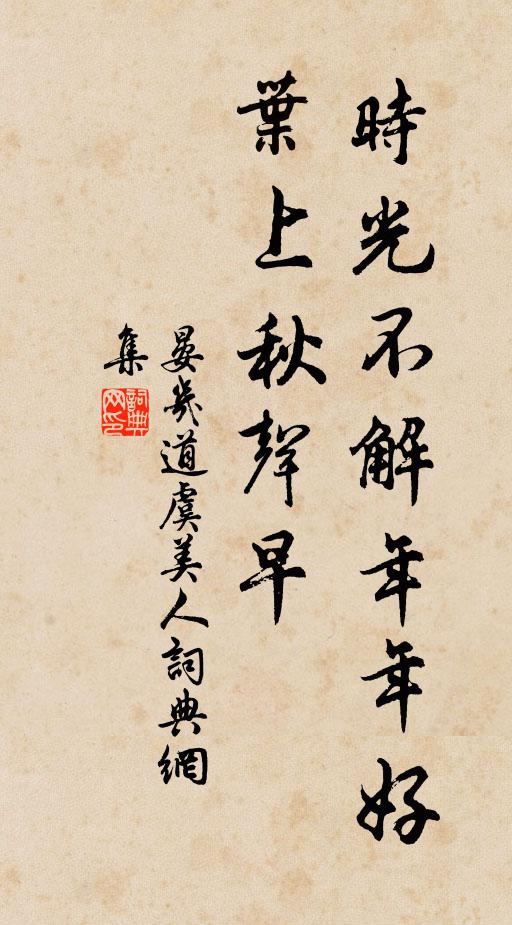 時光不解年年好
葉上秋聲早
晏幾道虞美人詞典網
集
詞典
网印